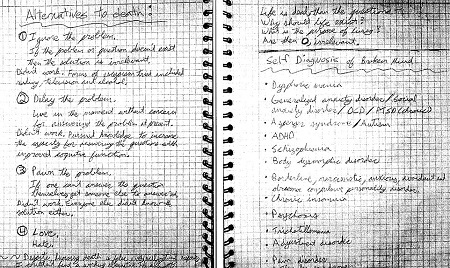 Alternatives to death:
① Ignore the problem.
If the problem or question doesn't exist
then the solution is irrelevant.
Didn't work. Forms of ignorance included
television and alcohol.
② Delay the problem.
Live in the moment without concern
for answering the problem at present.
Didn't work. Pursued knowledge to increase
the capacity for answering the question with
improved cognitive function.
③ Pawn the problem.
If one can't answer the question
themselves get someone else to answer it.
Didn't work. Everyone else didn't know the
solution either.
④ Love,
Hate.
Despite
Life is
Why should life exist?
What is the purpose of living?
Are there
irrelevant.
Self Diagnosis of Broken Mind
• Dysphoric mania
• Generalized anxiety disorder / Social
anxiety disorder / OCD / PTSD (chronic)
• Asperger syndrome / Autism
• ADHD
• Schizophrenia
• Body dysmorphic disorder
• Borderline, narcissistic, anxious, avoidant and
obsessive compulsive personality disorder
• Chronic insomnia
• Psychosis
• Trichotillomania
• Adjustment disorder
• Pain disorder